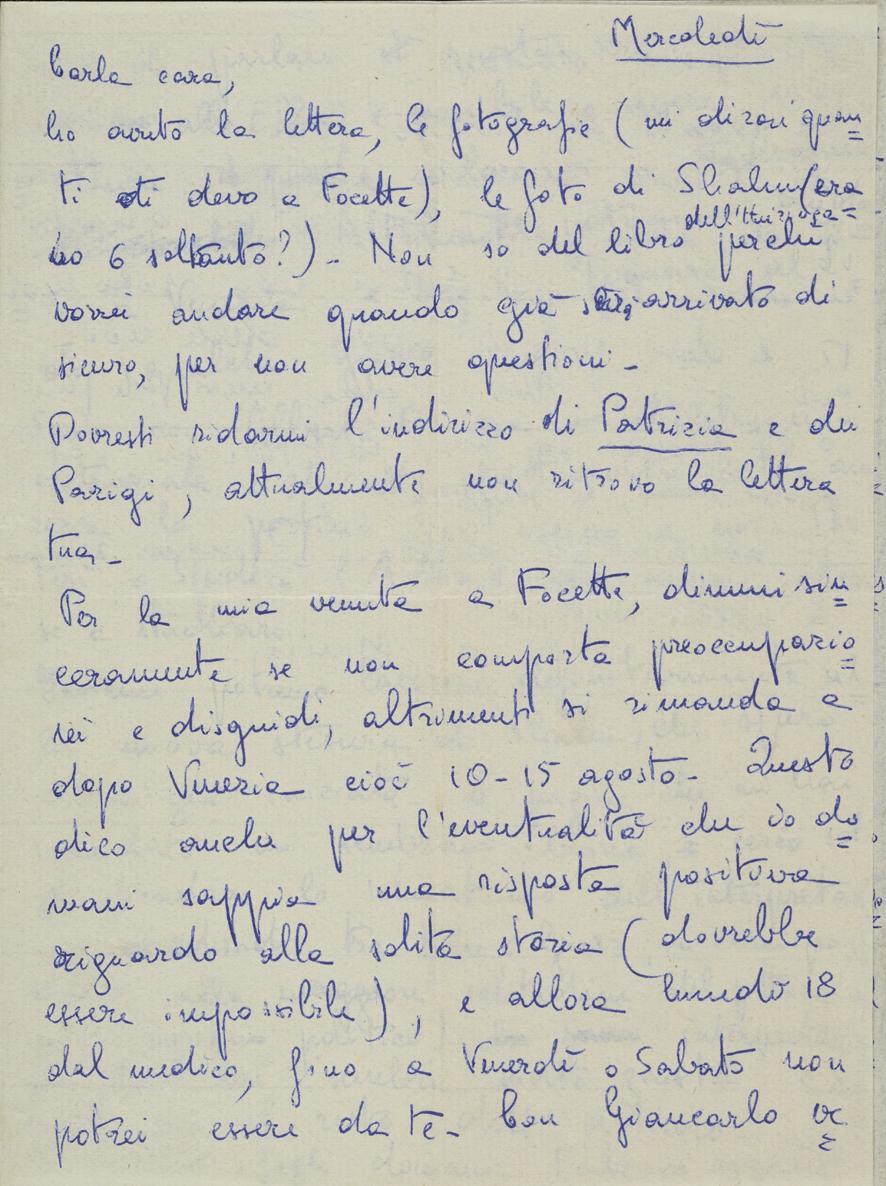 Mercoledì
Carla cara,
ho avuto la lettera, le fotografie (mi dirai quan=
ti ti devo a Focette), le foto di Shalom (era=
no 6 soltanto?) - Non so del libro perchè
vorrei andare quando già sarà arrivato di
sicuro, per non avere questioni -
Dovresti ridarmi l'indirizzo di Patrizia e dei
Parigi, attualmente non ritrovo la lettera
tua -
Per la mia venuta a Focette, dimmi sin=
ceramente se non comporta preoccupazio=
ni e disguidi, altrimenti si rimanda a
dopo Venezia cioè 10-15 agosto - Questo
dico anche per l'eventualità che io do=
mani sappia una risposta positiva
riguardo alla solita storia (dovrebbe
essere impossibile), e allora lunedì 18
dal medico, fino a Venerdì o Sabato non
potrei essere da te - Con Giancarlo ve=